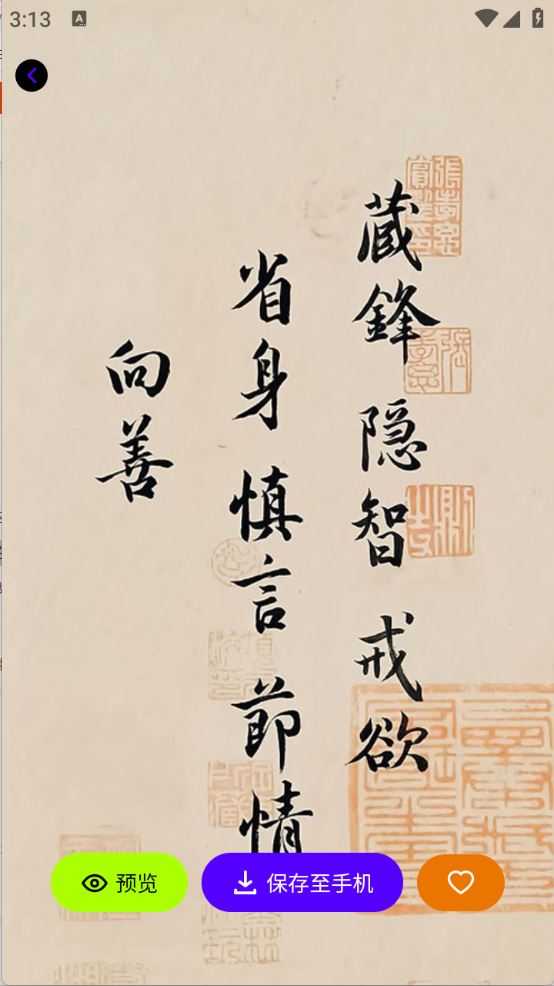 3:13
A
藏鋒 隐智 戒欲
省身 慎言 節情
向善
预览
保存至手机